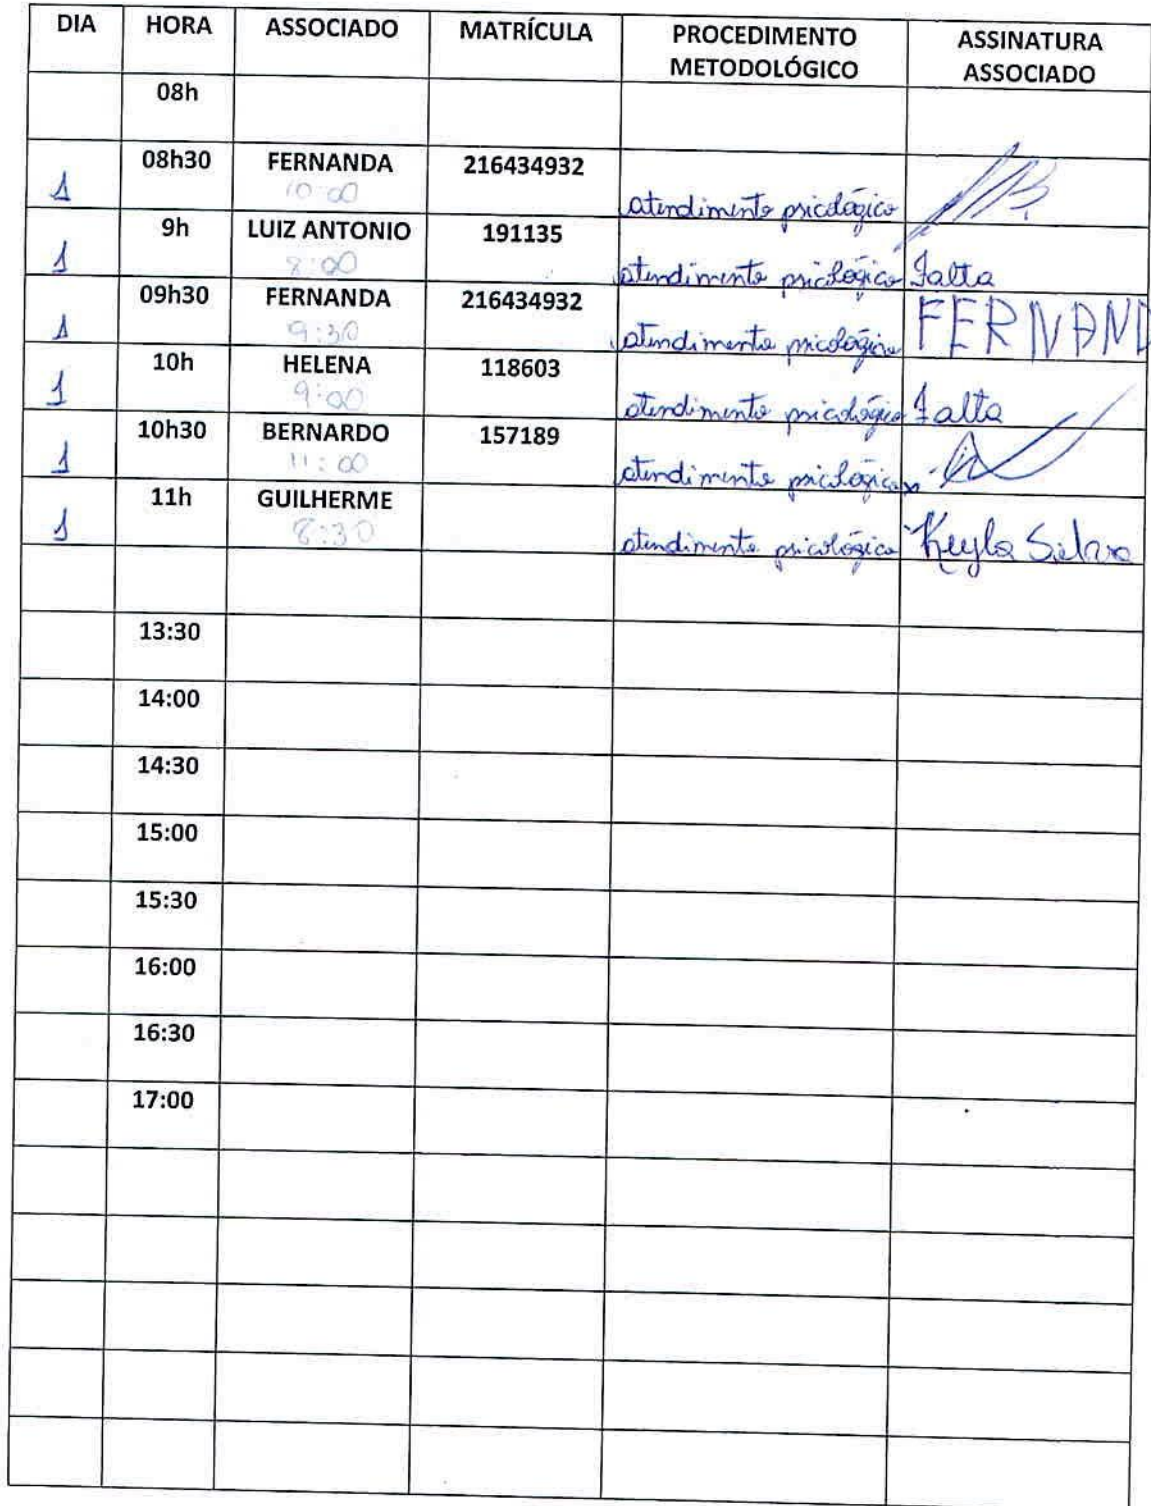 DIA HORA ASSOCIADO MATRÍCULA PROCEDIMENTO METODOLÓGICO ASSINATURA ASSOCIADO
08h
1 08h30 FERNANDA 10:00 216434932 atendimento psicológico
1 9h LUIZ ANTONIO 8:00 191135 atendimento psicológico Falta
1 09h30 FERNANDA 9:30 216434932 atendimento psicológico FERNAND
1 10h HELENA 9:00 118603 atendimento psicológico Falta
1 10h30 BERNARDO 11:00 157189 atendimento psicológico
1 11h GUILHERME 8:30 atendimento psicológico Keyla Silva
13:30
14:00
14:30
15:00
15:30
16:00
16:30
17:00